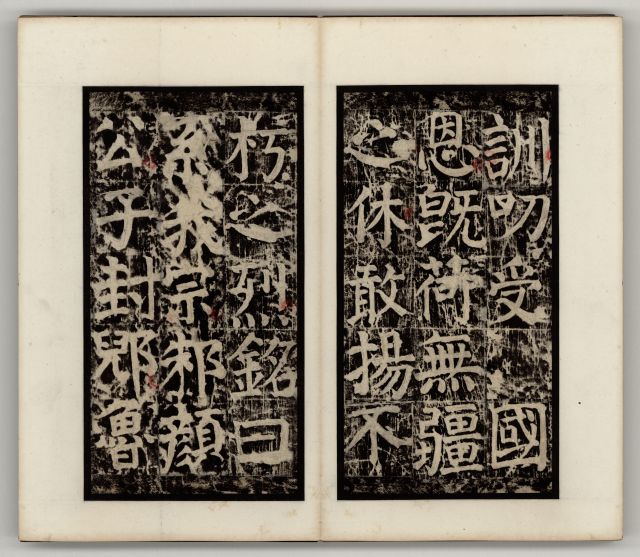 訓叨受 國
恩既荷無疆
之休敢揚不
朽之烈銘曰
系我宗邾顏
公子封郳魯